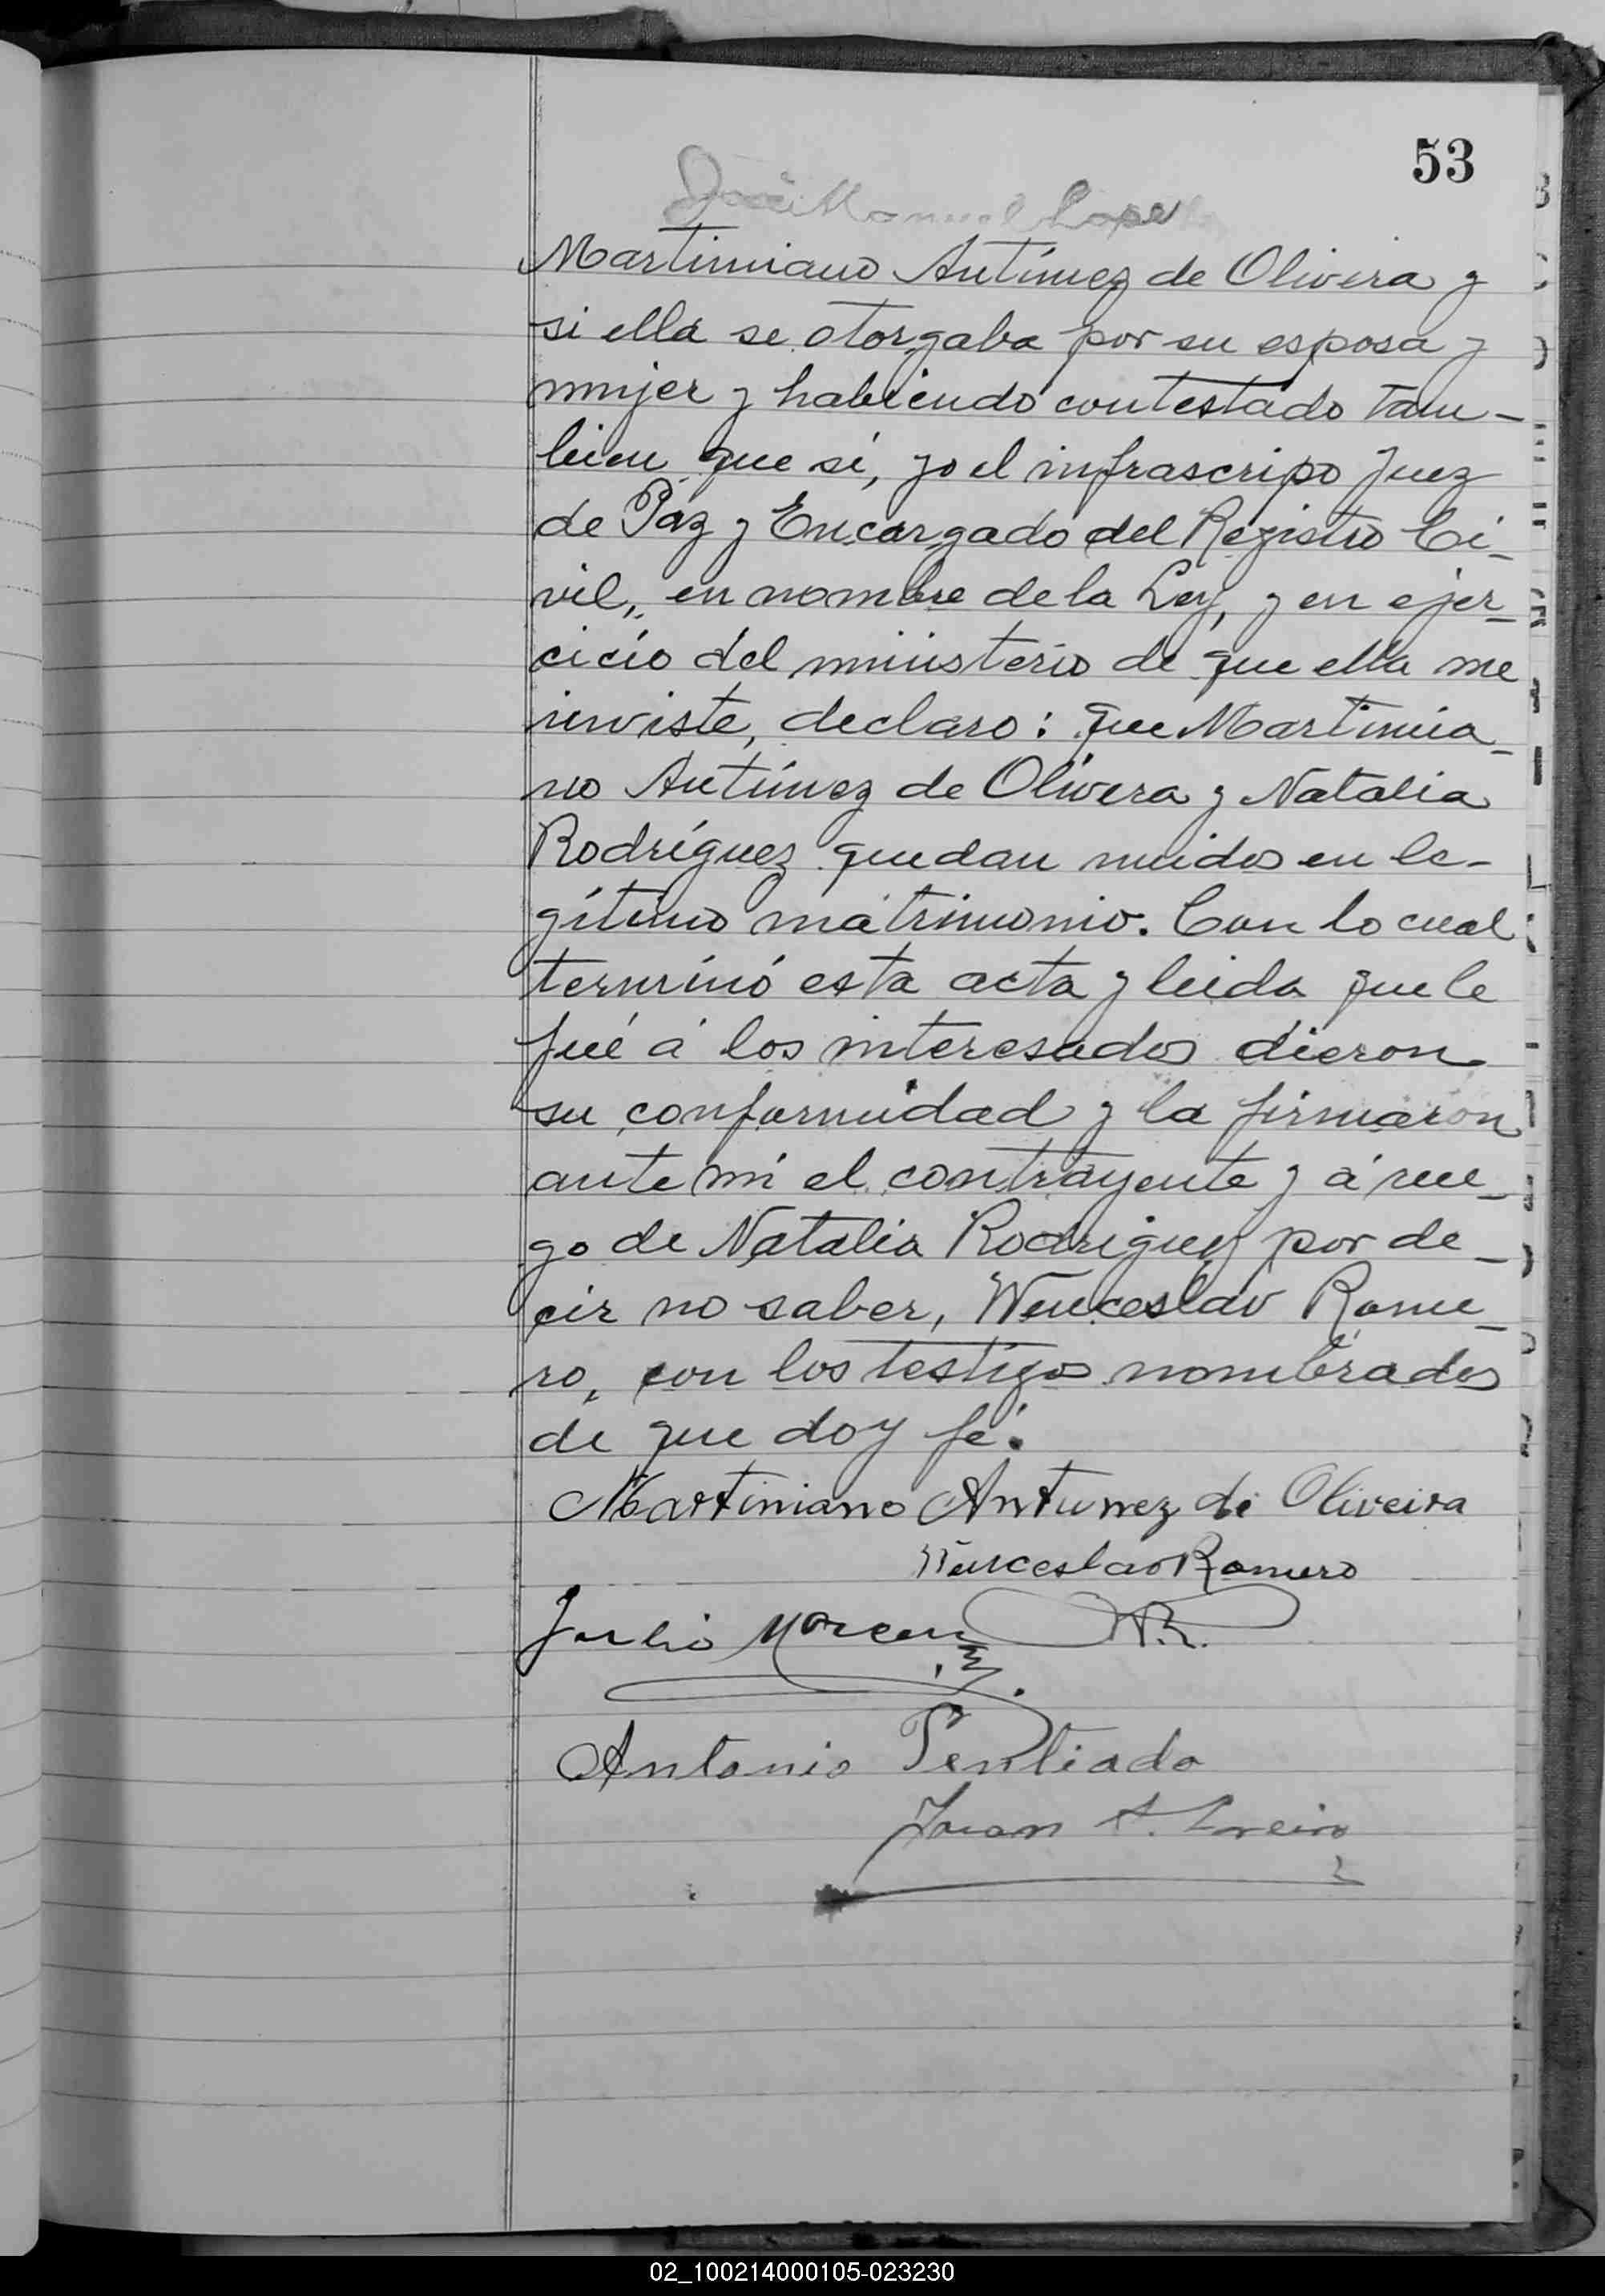 53
José Manuel Lopez
Martimiano Antúnez de Olivera y
si ella se otorgaba por su esposa y
mujer y habiendo contestado tam-
bien que sí, yo el infrascripo Juez
de Paz y Encargado del Registro Ci-
vil, en nombre de la Ley, y en ejer-
cicio del ministerio de que ella me
inviste, declaro: que Martimia-
no Antúnez de Olivera y Natalia
Rodríguez quedan unidos en le-
gítimo matrimonio. Con lo cual
terminó esta acta y leida que le
fué á los interesados dieron
su conformidad y la firmaron
ante mí el contrayente y á rue-
go de Natalia Rodriguez por de-
cir no saber, Wenceslao Rome-
ro, con los testigos nombrados
de que doy fé.
Martiniano Antunez de Oliveira
Wenceslao Romero
Julio
Antonio Pentiado
Juan A.
02_100214000105-023230